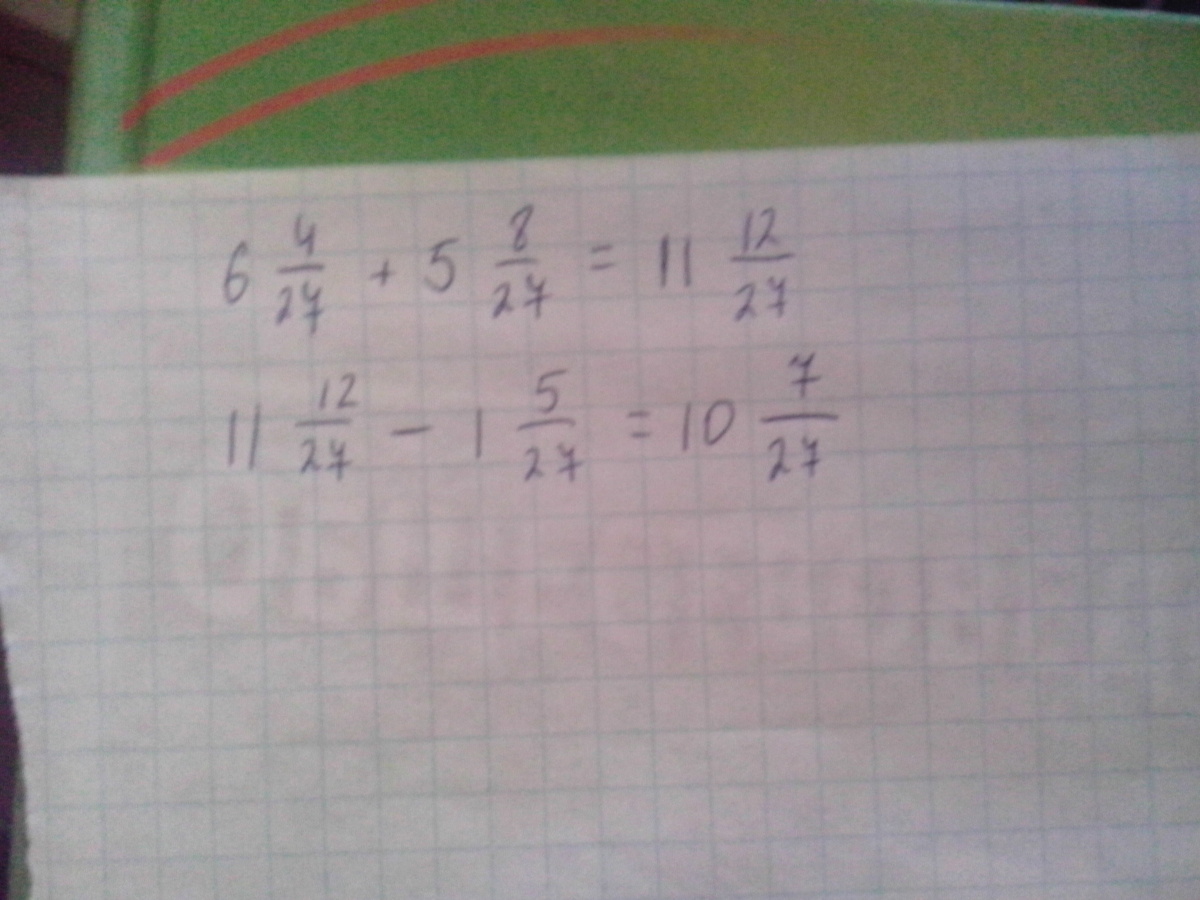 6 4/27 + 5 8/27 = 11 12/27
11 12/27 - 1 5/27 = 10 7/27